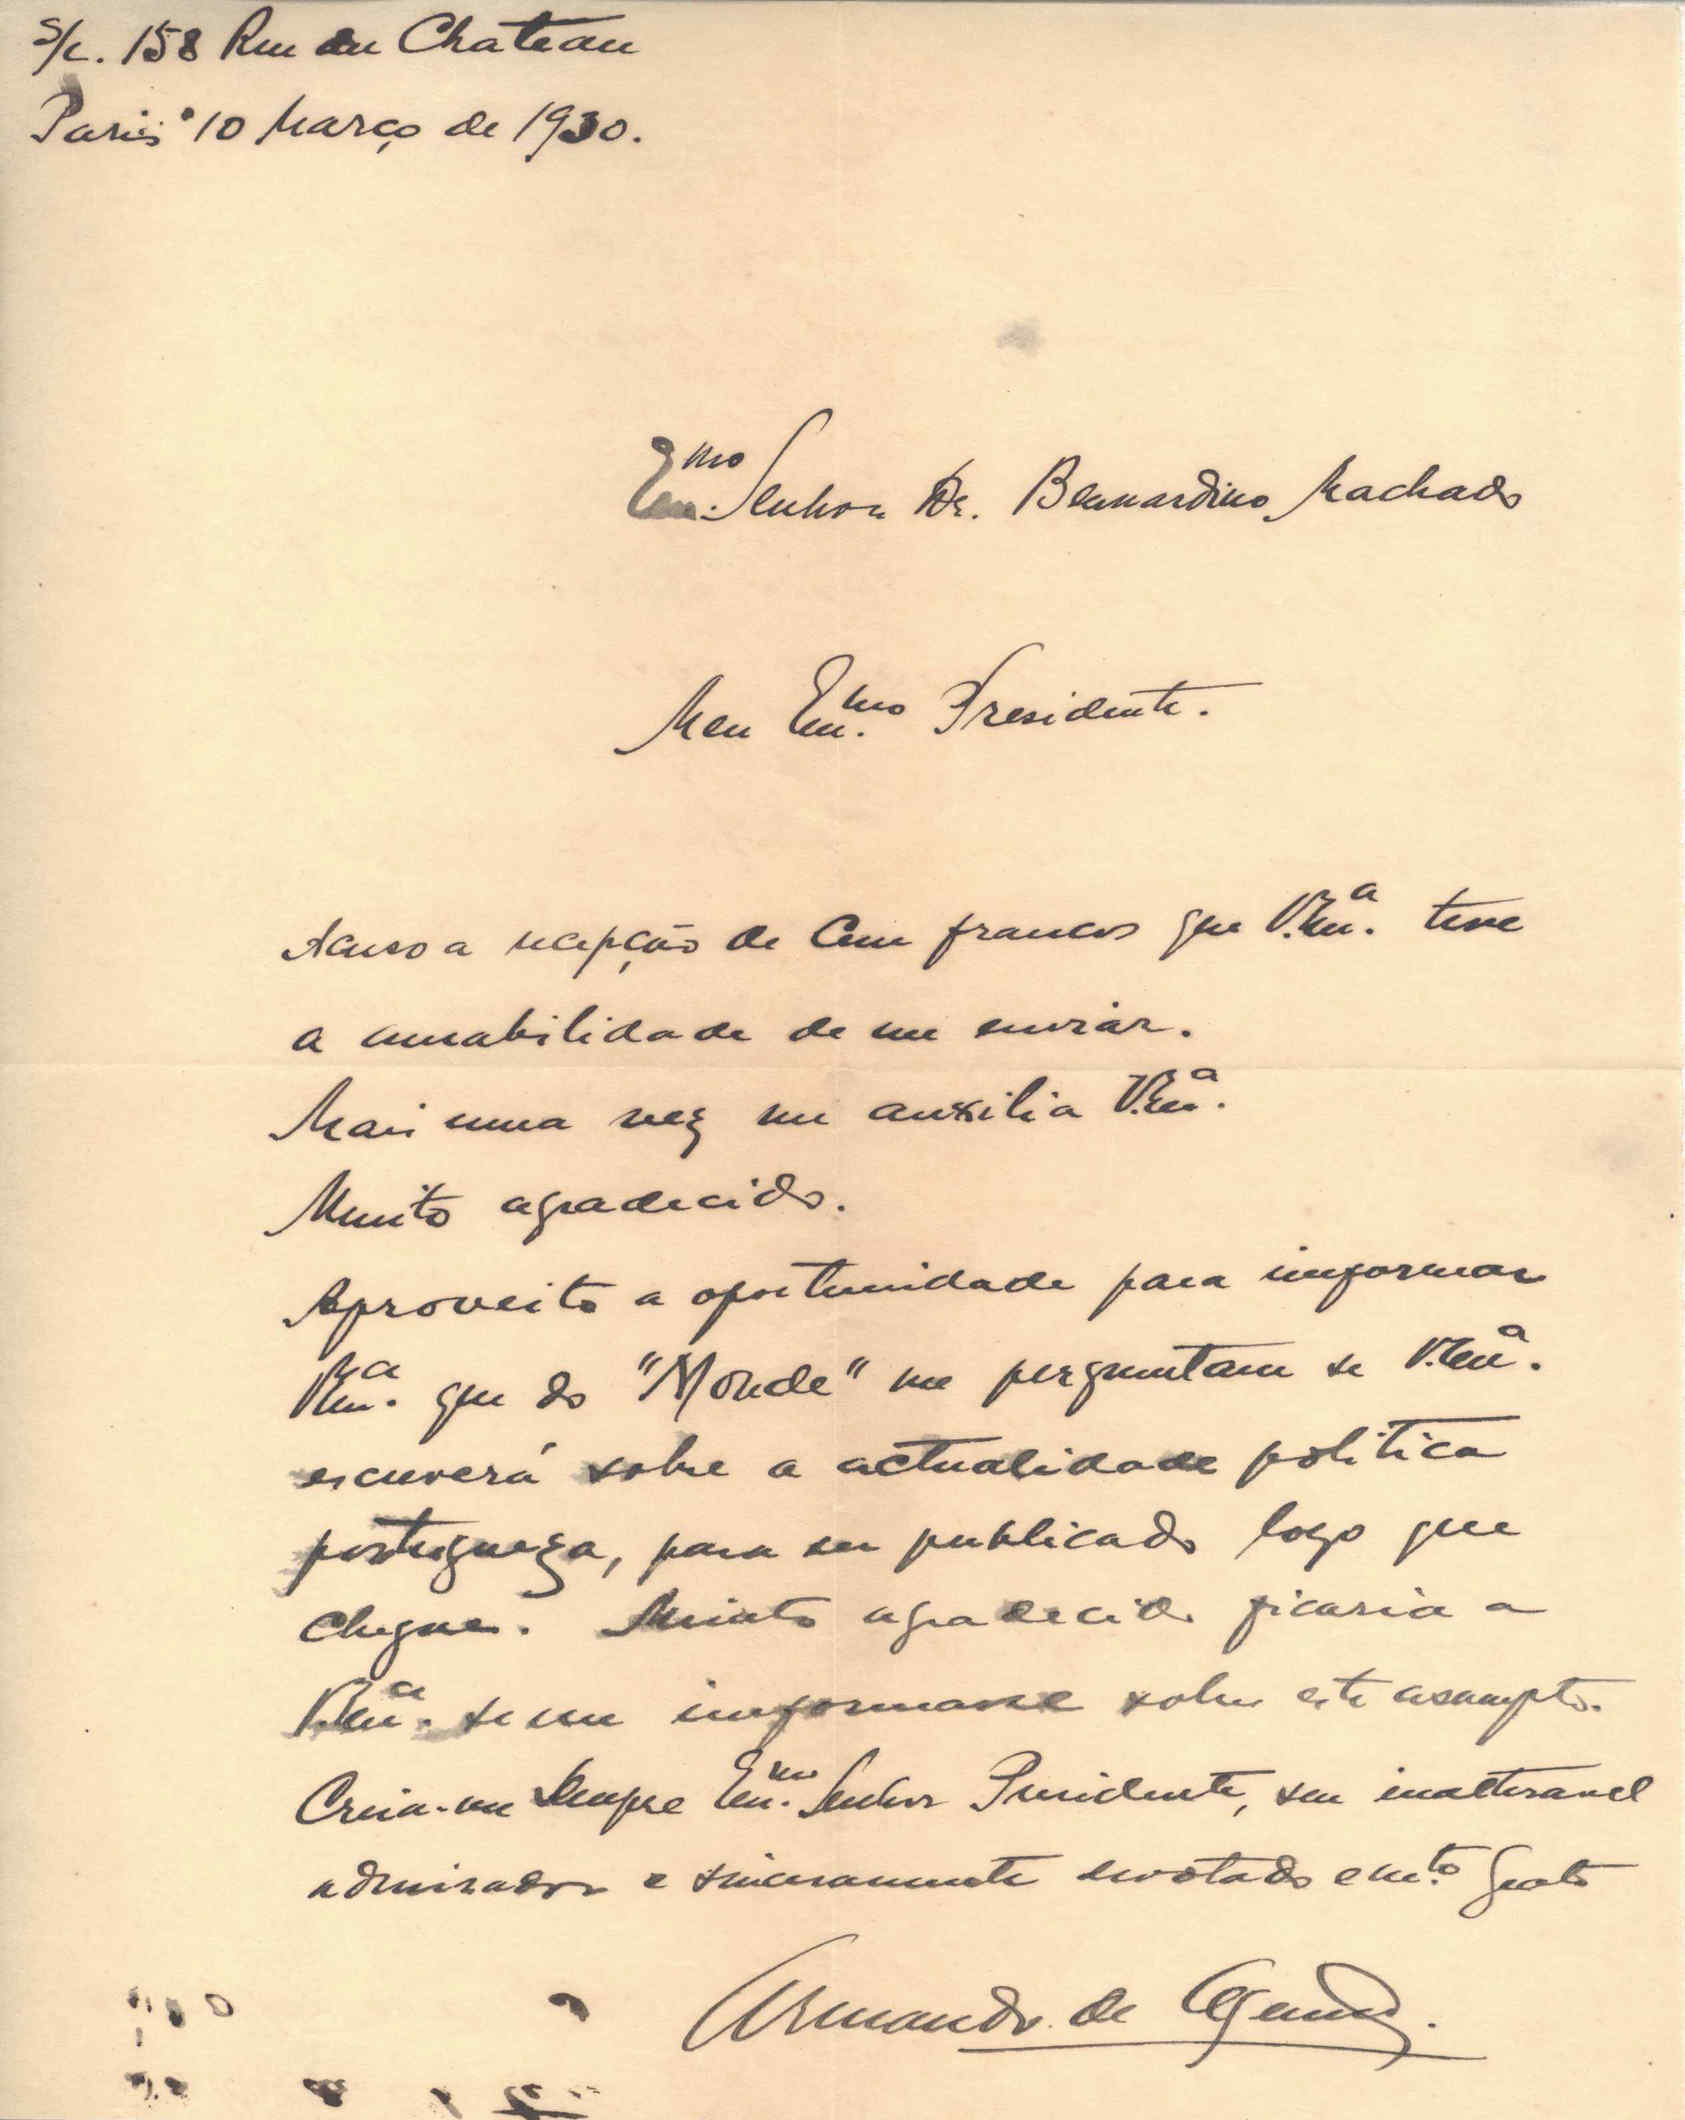 S/c. 158 Rue du Chateau
Paris 10 Março de 1930.
Exmo. Senhor Dr. Bernardino Machado
Meu Exmo. Presidente.
Acuso a recepção de Cem francos que V.Exa. teve
a amabilidade de me enviar.
Mais uma vez me auxilia V.Exa.
Muito agradecido.
Aproveito a oportunidade para informar
V.Exa. que do "Monde" me perguntam se V.Exa.
escreverá sobre a actualidade politica
portugueza, para ser publicado logo que
chegue. Muito agradecido ficaria a
V.Exa. se me informasse sobre este assumpto.
Creia-me sempre Exmo. Senhor Presidente, seu inalteravel
admirador e sinceramente devotado e m.to Grato
Armando de